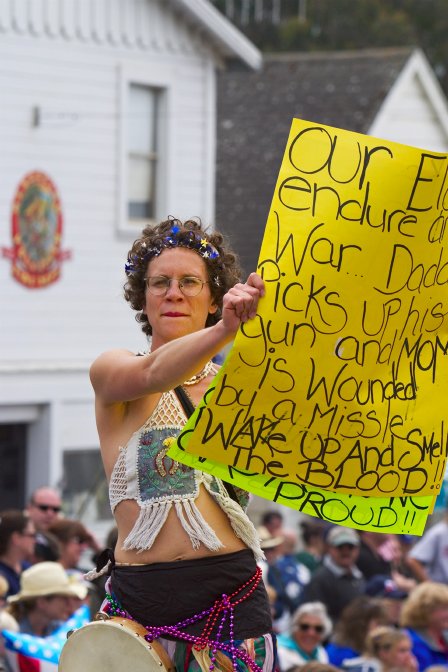 Our El
endure an
War... Dad
Picks up his
gun and MOM
is Wounded
by a Missle
WAKE UP And Smel
the BLOOD!!
PROUD!!